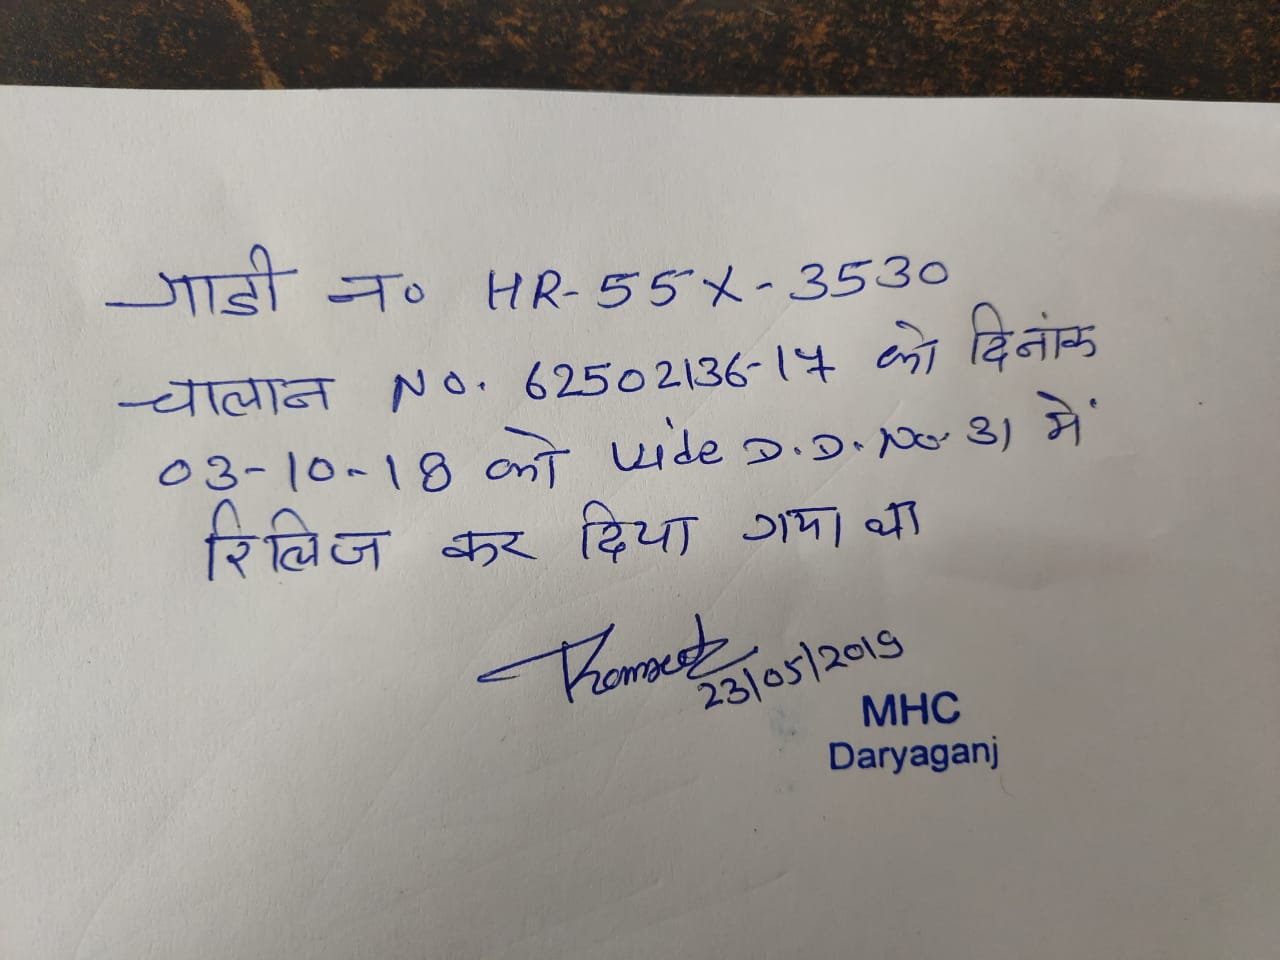 गाडी न० HR-55X-3530
चालान No. 62502136-17 को दिनांक
03-10-18 को vide D.D. No. 31 में
रिलिज कर दिया गया था
23/05/2019
MHC
Daryaganj